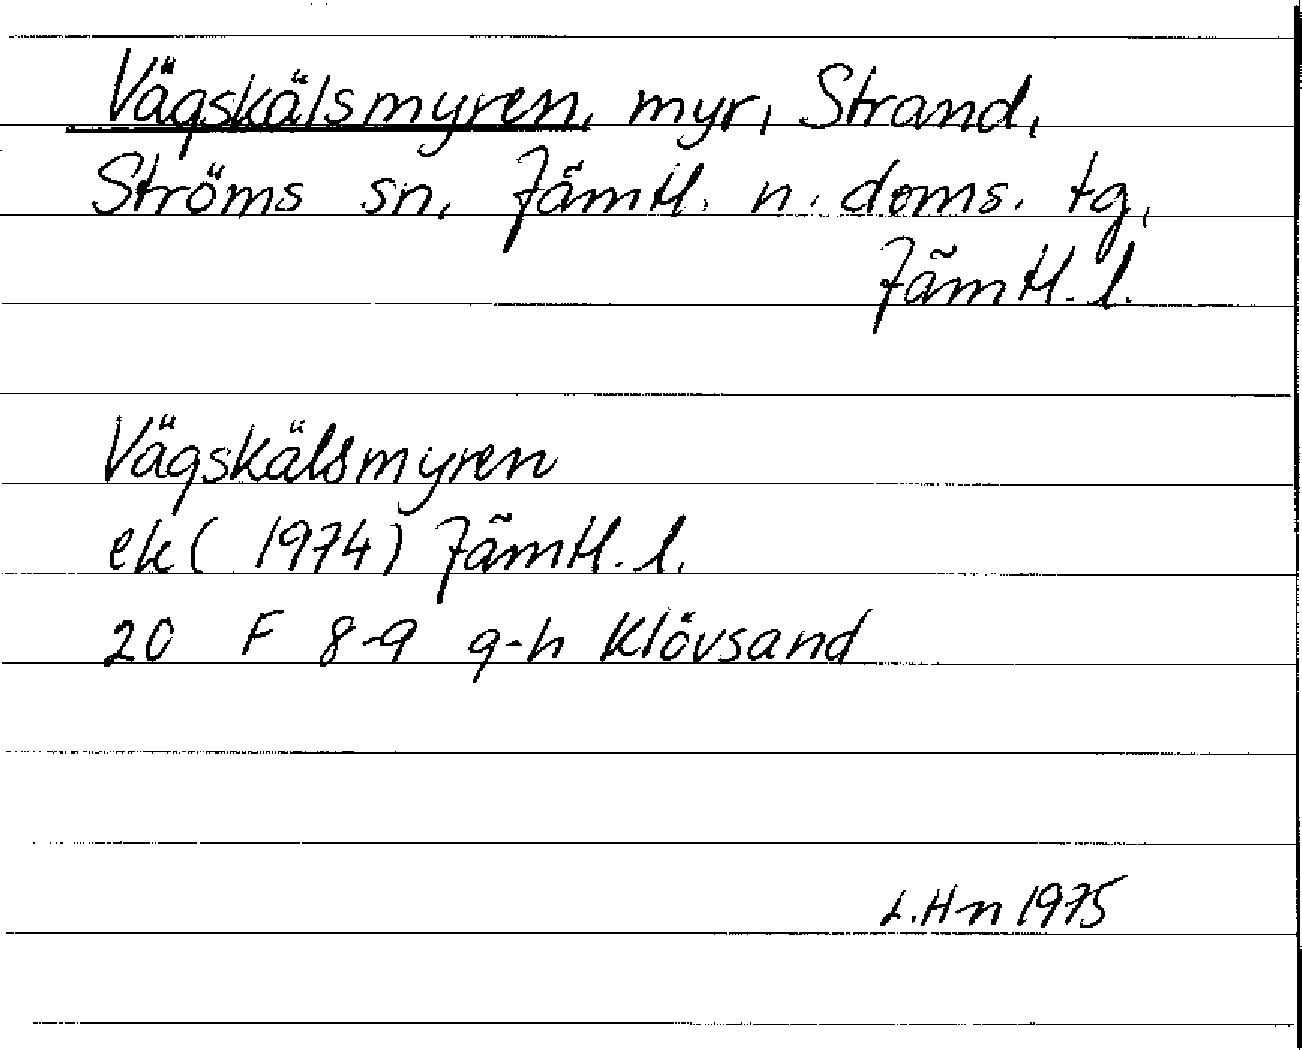 Vägskälsmyren, myr, Strand,
Ströms sn, Jämtl. n. doms. tg,
Jämtl. l.
Vägskälsmyren
ek (1974) Jämtl. l.
20 F 8-9 g-h Klövsand
L.Hn 1975